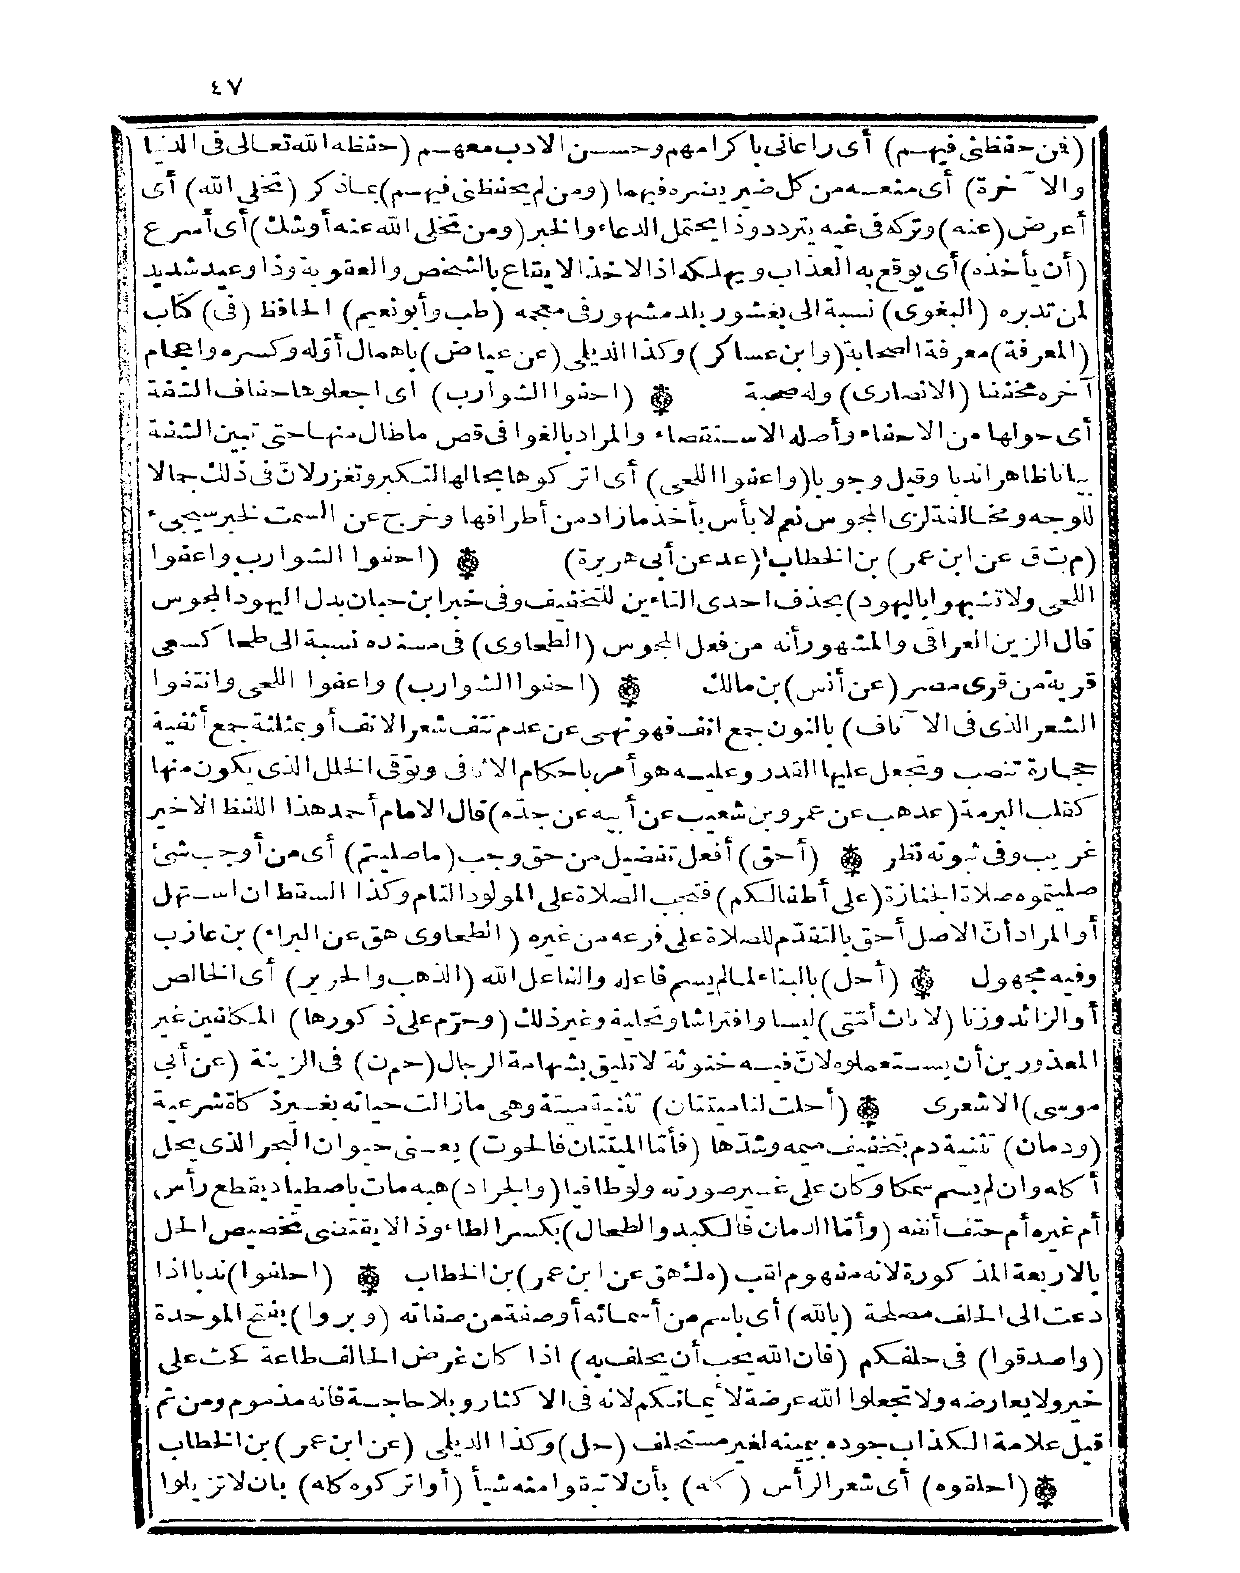 ٤٧
(فمن حفظني فيهم) أي راعاني باكرامهم وحسن الادب معهم (حفظه الله تعالى في الدنيا
والآخرة) أي منعه من كل ضير يضره فيهما (ومن لم يحفظني فيهم) بما ذكر (تخلى الله) أي
أعرض (عنه) وتركه في غيه يتردد وذا يحتمل الدعاء والخبر (ومن تخلى الله عنه أوشك) أي أسرع
(أن يأخذه) أي يوقع به العذاب ويهلكه اذ الاخذ الايقاع بالشخص والعقوبة وذا وعيد شديد
لمن تدبره (البغوي) نسبة الى بغشور بلد مشهور في معجمه (طب وأبو نعيم) الحافظ (في) كتاب
(المعرفة) معرفة الصحابة (وابن عساكر) وكذا الديلى (عن عياض) باهمال أوله وكسره واعجام
آخره مخففا (الانصاري) وله صحبة ۞ (احفوا الشوارب) اى اجعلوها حفاف الشفة
أى حولها من الاحفاء وأصله الاستقصاء والمراد بالغوا في قص ماطال منها حتى تبين الشفة
بيانا ظاهرا ندبا وقيل وجوبا (واعفوا اللحى) أى اتركوها بحالها لتكبر وتغزر لانّ في ذلك جمالا
للوجه ومخالفة لزى المجوس نعم لا بأس بأخذ مازاد من أطرافها وخرج عن السمت لخبر سيجيء
(م ت ق عن ابن عمر) بن الخطاب (عد عن أبي هريرة) ۞ (احفوا الشوارب واعفوا
اللحى ولا تشبهوا باليهود) بحذف احدى التاءين للتخفيف وفي خبر ابن حبان بدل اليهود المجوس
قال الزين العراقى والمشهور أنه من فعل المجوس (الطحاوى) في مسنده نسبة الى طحا كسعى
قرية من قرى مصر (عن أنس) بن مالك ۞ (احفوا الشوارب) واعفوا اللحى وانتفوا
الشعر الذى في الآناف) بالنون جمع انف فهو نهى عن عدم نتف شعر الانف أو بمثلثة جمع أثفية
حجارة تنصب وتجعل عليها القدر وعليه هو أمر باحكام الاثافى وتوقى الخلل الذى يكون منها
كقلب البرمة (عد هب عن عمرو بن شعيب عن أبيه عن جدّه) قال الامام أحمد هذا اللفظ الاخير
غريب وفى ثبوته نظر ۞ (أحق) أفعل تفضيل من حق وجب (ماصليتم) أى من أوجب شئ
صليتموه صلاة الجنازة (على أطفالكم) فتجب الصلاة على المولود التام وكذا السقط ان استهل
أو المراد أنّ الاصل أحق بالتقدّم للصلاة على فرعه من غيره (الطحاوى هق عن البراء) بن عازب
وفيه مجهول ۞ (أحل) بالبناء لمالم يسم فاعله والفاعل الله (الذهب والحرير) أى الخالص
أو الزائد وزنا (لاناث أمّتى) لبسا وافتراشا وتحلية وغير ذلك (وحرّم على ذكورها) المكلفين غير
المعذورين أن يستعملوه لانّ فيه خنوثة لا تليق بشهامة الرجال (حم ن) فى الزينة (عن أبي
موسى) الاشعرى ۞ (أحلت لنا ميتتان) تثنية ميتة وهى مازالت حياته بغير ذكاة شرعية
(ودمان) تثنية دم بتخفيف ميمه وشدّها (فأمّا الميتتان فالحوت) يعنى حيوان البحر الذى يحل
أكله وان لم يسم سمكا وكان على غير صورته ولو طافيا (والجراد) هبه مات باصطياد بقطع رأس
أم غيره أم حتف أنفه (وأمّا الدمان فالكبد والطحال) بكسر الطاء وذا لا يقتضى تخصيص الحل
بالاربعة المذكورة لانه مفهوم لقب (ه ك هق عن ابن عمر) بن الخطاب ۞ (احلفوا) ندبا اذا
دعت الى الحلف مصلحة (بالله) أى باسم من أسمائه أو صفة من صفاته (وبروا) بفتح الموحدة
(واصدقوا) فى حلفكم (فان الله يحب أن يحلف به) اذا كان غرض الحالف طاعة كحث على
خير ولا يعارضه ولا تجعلوا الله عرضة لأيمانكم لانه في الاكثار وبلا حاجة فانه مذموم ومن ثم
قيل علامة الكذاب جوده بيمينه لغير مستحلف (حل) وكذا الديلى (عن ابن عمر) بن الخطاب
۞ (احلقوه) أى شعر الرأس (كله) بأن لا تبقوا منه شيأ (أو اتركوه كله) بان لا تزيلوا